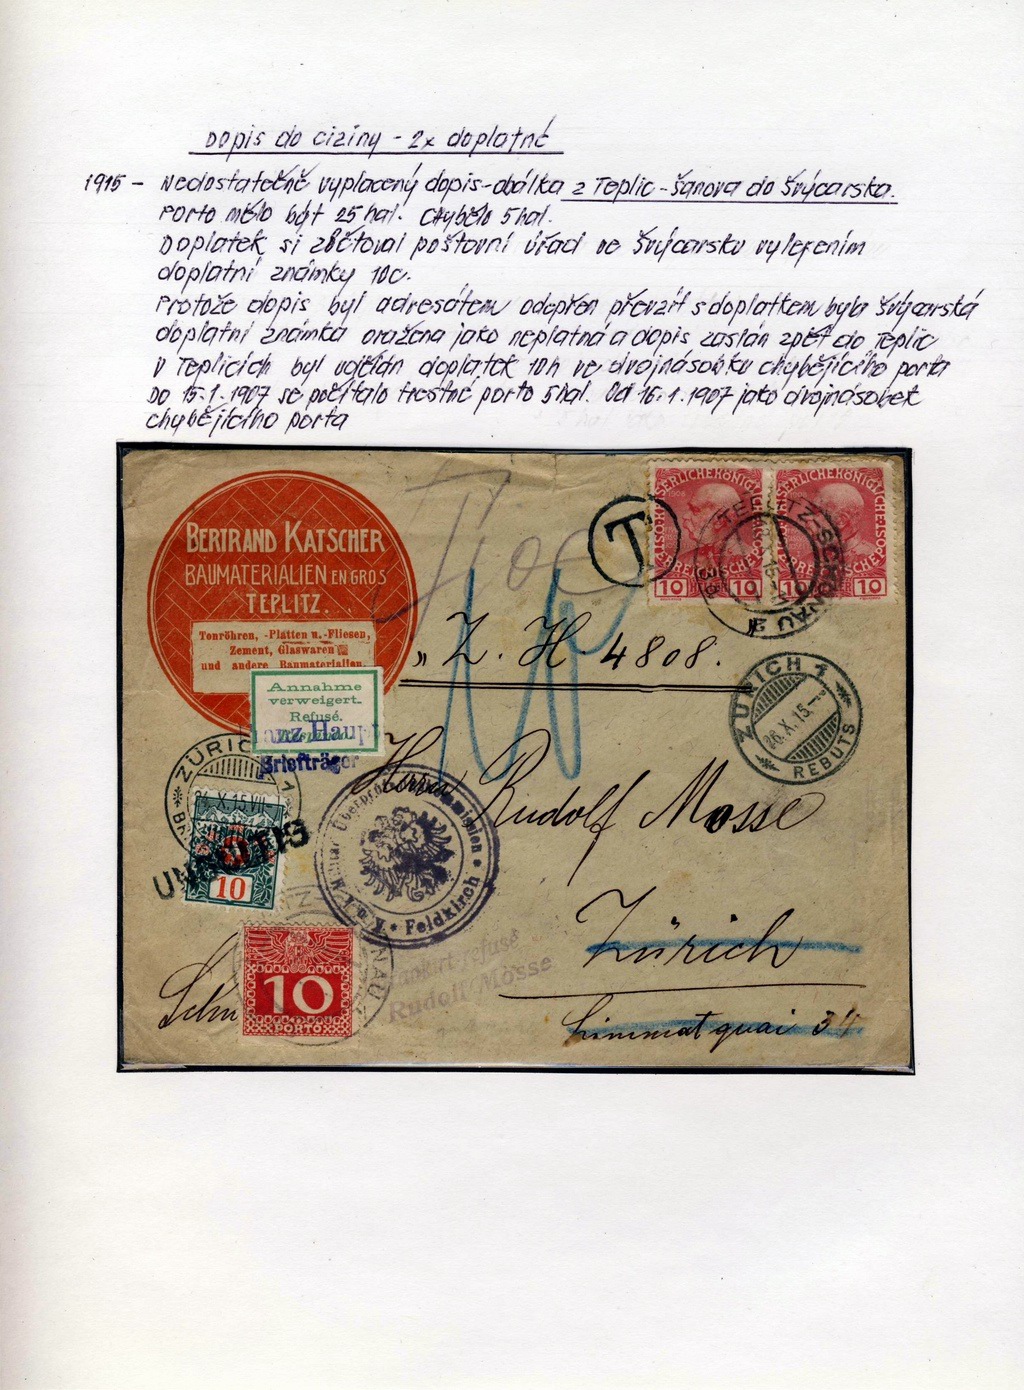 Dopis do ciziny - 2x doplatné
1915 - Nedostatečně vyplacený dopis-obálka z Teplic-Šanova do Švýcarska.
Porto mělo být 25 hal. Chybělo 5 hal.
Doplatek si zúčtoval poštovní úřad ve Švýcarsku vylepením
doplatní známky 10c.
Protože dopis byl adresátem odepřen převzít s doplatkem byla švýcarská
doplatní známka oražena jako neplatná a dopis zaslán zpět do Teplic
V Teplicích byl vybrán doplatek 10h ve dvojnásobku chybějícího porta
Do 15.1.1907 se počítalo trestné porto 5 hal. Od 16.1.1907 jako dvojnásobek
chybějícího porta
BERTRAND KATSCHER
BAUMATERIALIEN EN GROS
TEPLITZ.
Tonröhren, -Platten u. -Fliesen,
Zement, Glaswaren
und andere Baumaterialien.
Annahme
verweigert.
Refusé.
Briefträger
T
10 10
10 10
TEPLITZ-SCHÖNAU
T 10c
10
„Z. H 4808.
ZÜRICH 1
26.X.15.
REBUTS
Herrn Rudolf Mosse
Zürich
Limmatquai 34
ZÜRICH 1
24.X.15.VII
UNGÜLTIG
10
K.u.K. Militär Überprüfungskommission
Feldkirch
10
PORTO
refusé
Rudolf Mosse